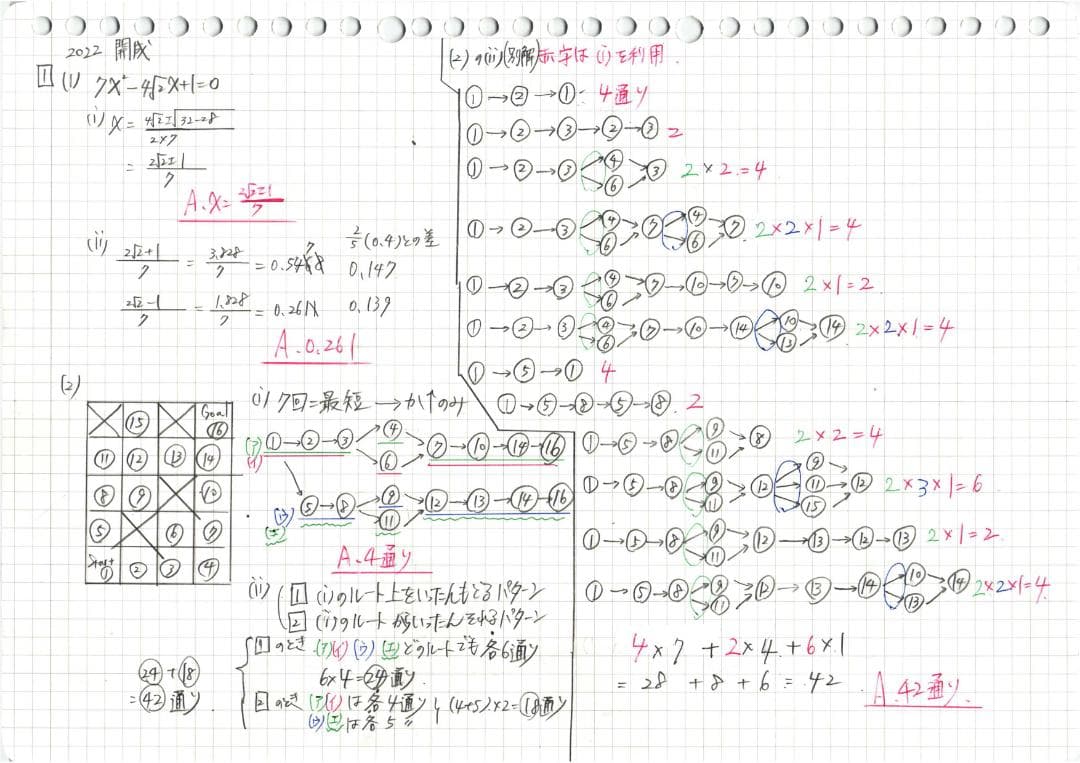 2022 開成
1 (1) 7x²-4√2x+1=0
(i) x= 4√2±√32-28 / 2×7
= 2√2±1 / 7
A. x= 2√2±1 / 7
(ii) 2√2+1 / 7 = 3.828 / 7 = 0.547
2/5 (0.4)との差
0.147
2√2-1 / 7 = 1.828 / 7 = 0.261
0.139
A. 0.261
(2)
⑮ Goal ⑯
⑪ ⑫ ⑬ ⑭
⑧ ⑨ ⑩
⑤ ⑥ ⑦
Start ① ② ③ ④
(i) 7回=最短 →か↑のみ
(ア) (イ) ①→②→③ ④ ⑥ ⑦→⑩→⑭→⑯
(ウ) (エ) ⑤→⑧ ⑨ ⑪ ⑫→⑬→⑭→⑯
A. 4通り
(ii) 1 (i)のルート上をいったんもどるパターン
2 (i)のルートからいったんそれるパターン
1のとき (ア)(イ)(ウ)(エ)どのルートでも各6通り
6×4=24通り
2のとき (ア)(イ)は各4通り (4+5)×2=18通り
(ウ)(エ)は各5〃
24+18
=42通り
(2)の(ii)(別解)赤字は(i)を利用.
①→②→①: 4通り
①→②→③→②→③ 2
①→②→③ ④ ⑥ ③ 2×2=4
①→②→③ ④ ⑥ ⑦ ④ ⑥ ⑦ 2×2×1=4
①→②→③ ④ ⑥ ⑦→⑩→⑦→⑩ 2×1=2
①→②→③ ④ ⑥ ⑦→⑩→⑭ ⑩ ⑬ ⑭ 2×2×1=4
①→⑤→① 4
①→⑤→⑧→⑤→⑧. 2
①→⑤→⑧ ⑨ ⑪ ⑧ 2×2=4
①→⑤→⑧ ⑨ ⑪ ⑫ ⑨ ⑪ ⑮ ⑫ 2×3×1=6
①→⑤→⑧ ⑨ ⑪ ⑫→⑬→⑫→⑬ 2×1=2
①→⑤→⑧ ⑨ ⑪ ⑫→⑬→⑭ ⑩ ⑬ ⑭ 2×2×1=4
4×7+2×4+6×1
=28+8+6=42
A. 42通り.